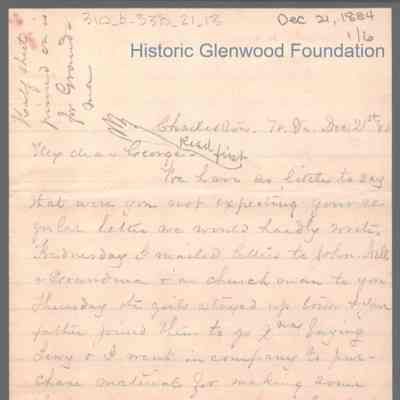 310_b-33b_21_18
Dec 21, 1884
1/6
Historic Glenwood Foundation
Half sheet
pinned on is
for Grand-
ma
Charleston, W. Va. Dec 21st 84
read first
My dear George:
We have so little to say
that were you not expecting your re
gular letter we would hardly write.
Wednesday I mailed letters to John, Nell
& Grandma & a churchman to you
Thursday the girls stayed up town & your
father joined them to go Xmas buying
Leny & I went in company to pur-
chase material for making some